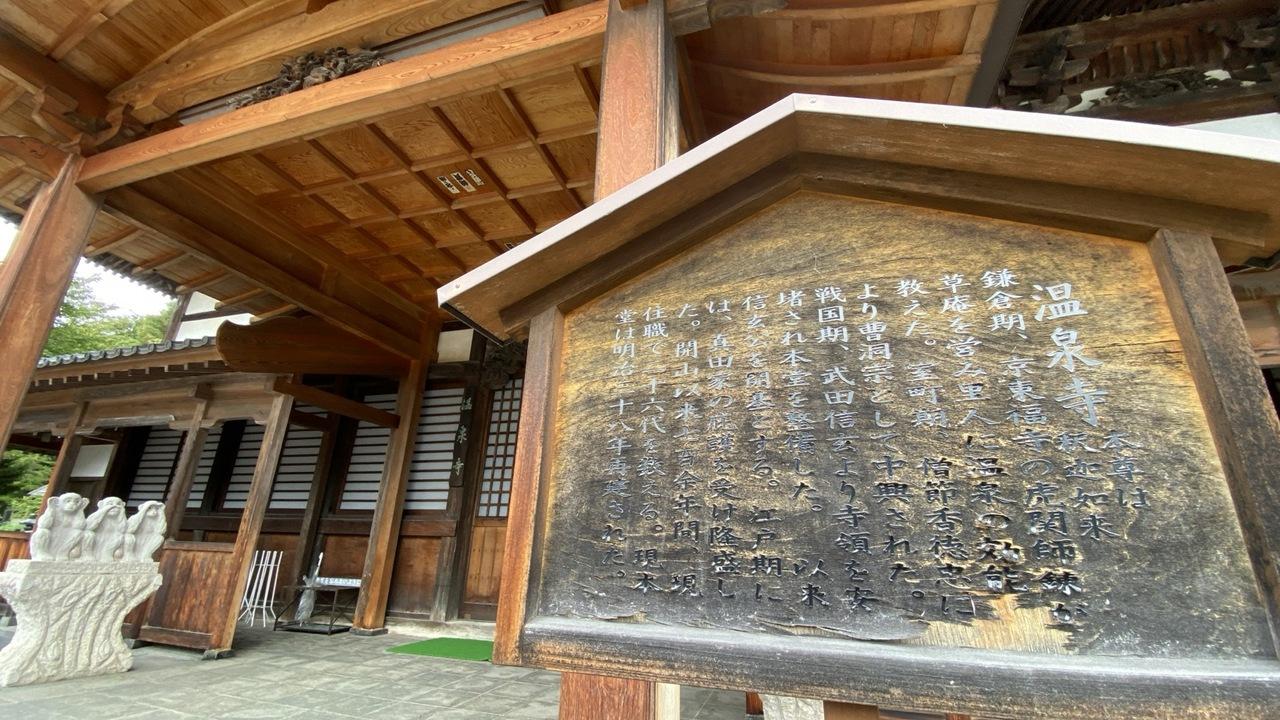 温泉寺
本尊は
釈迦如来
鎌倉期、京東福寺の虎関師錬が
草庵を営み里人に温泉の効能
教えた。室町期、僧節香徳忠に
より曹洞宗として中興された。
戦国期、武田信玄より寺領を安
堵され本堂を整備した。以来
信玄を開基とする。江戸期に
は、真田家の庇護を受け隆盛し
た。開山以来七百余年間、現
住職で二十六代を数える。現本
堂は明治三十八年再建された。
温泉寺